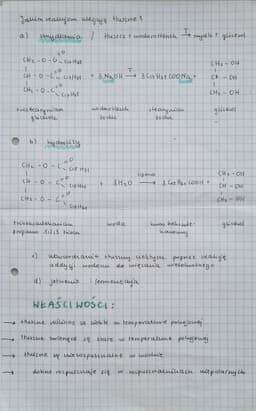 Jakim reakcjom ulegają tłuszcze?
a) zmydlania / tłuszcz + wodorotlenek T→ mydło + glicerol
CH₂ - O - C=O C₁₇H₃₅
CH - O - C=O C₁₇H₃₅ + 3 NaOH T→ 3 C₁₇H₃₅COONa + CH₂ - OH
CH - OH
CH₂ - O - C=O C₁₇H₃₅ CH₂ - OH
wodorotlenek stearynian glicerol
sodu sodu
b) hydrolizy
CH₂ - O - C=O C₁₇H₃₁
CH - O - C=O C₁₇H₃₁ + 3 H₂O → 3 C₁₇H₃₁COOH + CH₂ - OH
CH - OH
CH₂ - O - C=O C₁₇H₃₁ CH₂ - OH
woda kwas glicerol
c) utwardzanie tłuszczy ciekłych poprzez reakcję
addycji wodoru do wiązania wielokrotnego
d) jełczenie / fermentacja
WŁAŚCIWOŚCI:
→ tłuszcze roślinne są ciekłe w temperaturze pokojowej
→ tłuszcze zwierzęce są stałe w temperaturze pokojowej
→ tłuszcze są nierozpuszczalne w wodzie
→ dobrze rozpuszczają się w rozpuszczalnikach niepolarnych